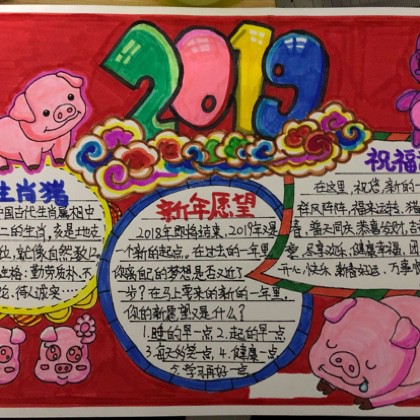 2019
生肖猪
中国古代生肖属相中
二的生肖,亥是地支
位,就像自然数12。
性格:勤劳质朴,不
待人诚实……
新年愿望
2018年即将结束,2019年又是
一个新的起点。在过去的一年里
你离自己的梦想是否又近了
一步?在马上要来的新的一年里,
你的新愿望又是什么?
1.睡的早一点 2.起的早一点
3.每天好笑一点 4.健康一点
5.学习再好一点
祝福
在这里,祝您新的
祥风阵阵,福来运转,猪
春,普天同庆,恭喜发财,吉
尽享欢乐,健康幸福,团
开心快乐 新春好运,万事